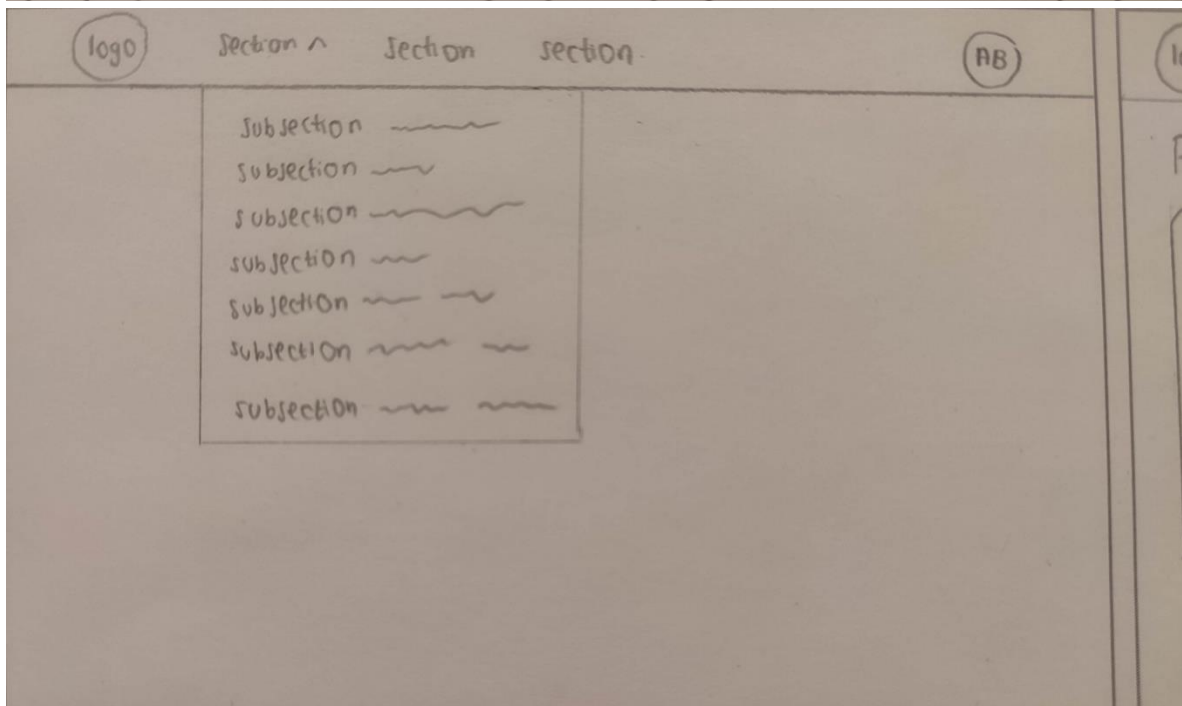 logo section ^ section section AB
subsection
subsection
subsection
subsection
subsection
subsection
subsection